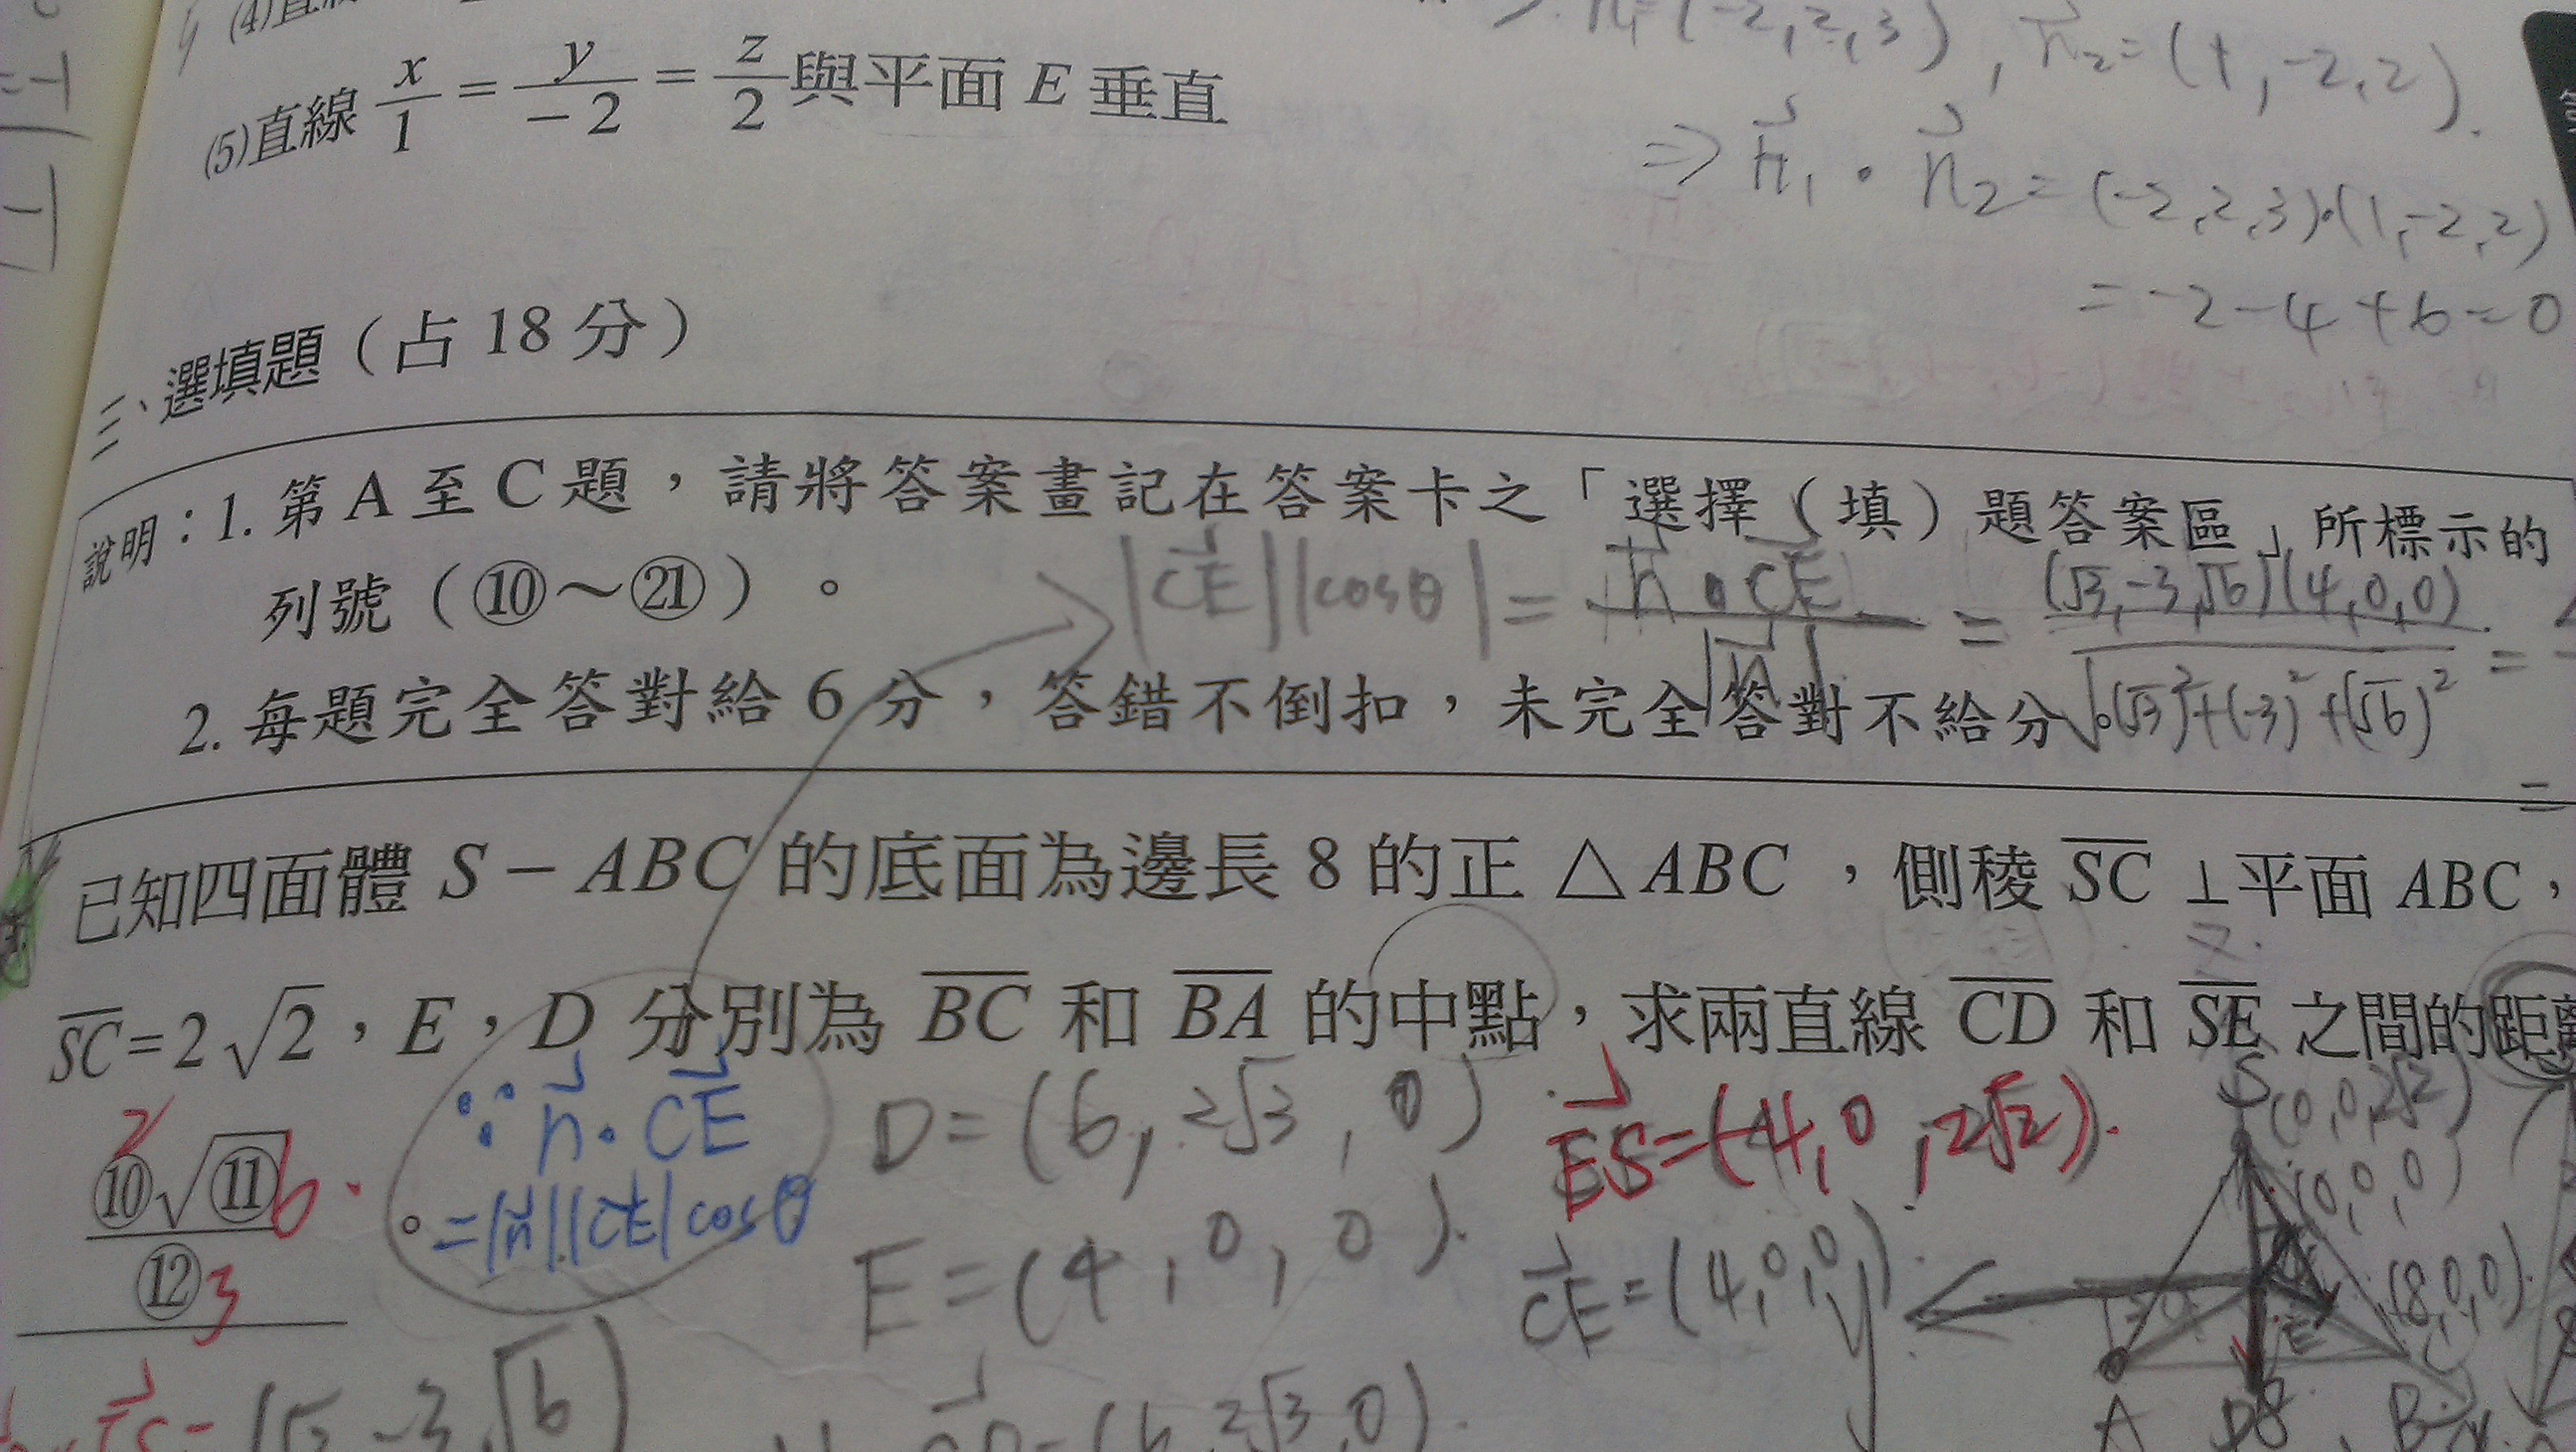 (4)直線
(5)直線 x/1 = y/-2 = z/2 與平面 E 垂直
n₁=(-2,2,3), n₂=(1,-2,2).
⇒ n₁・n₂=(-2,2,3)・(1,-2,2)
=-2-4+6=0
=-1
三、選填題（占 18 分）
說明：1. 第 A 至 C 題，請將答案畫記在答案卡之「選擇（填）題答案區」所標示的
列號（⑩～㉑）。
|CE||cosθ| = n・CE/|n| = (√3,-3,√6)(4,0,0)/√((√3)²+(-3)²+(√6)²) =
2. 每題完全答對給 6 分，答錯不倒扣，未完全答對不給分。
已知四面體 S－ABC 的底面為邊長 8 的正△ABC，側稜 SC ⊥平面 ABC，
SC=2√2，E，D 分別為 BC 和 BA 的中點，求兩直線 CD 和 SE 之間的距離
⑩√⑪/⑫ 。
2 6 3
∵ n・CE
=|n||CE|cosθ
D=(6,2√3,0)
E=(4,0,0).
ES=(-4,0,2√2).
CE=(4,0,0)
S(0,0,2√2)
(0,0,0)
(8,0,0)
A D B
(√3,-3,√6)
CD=(6,2√3,0).